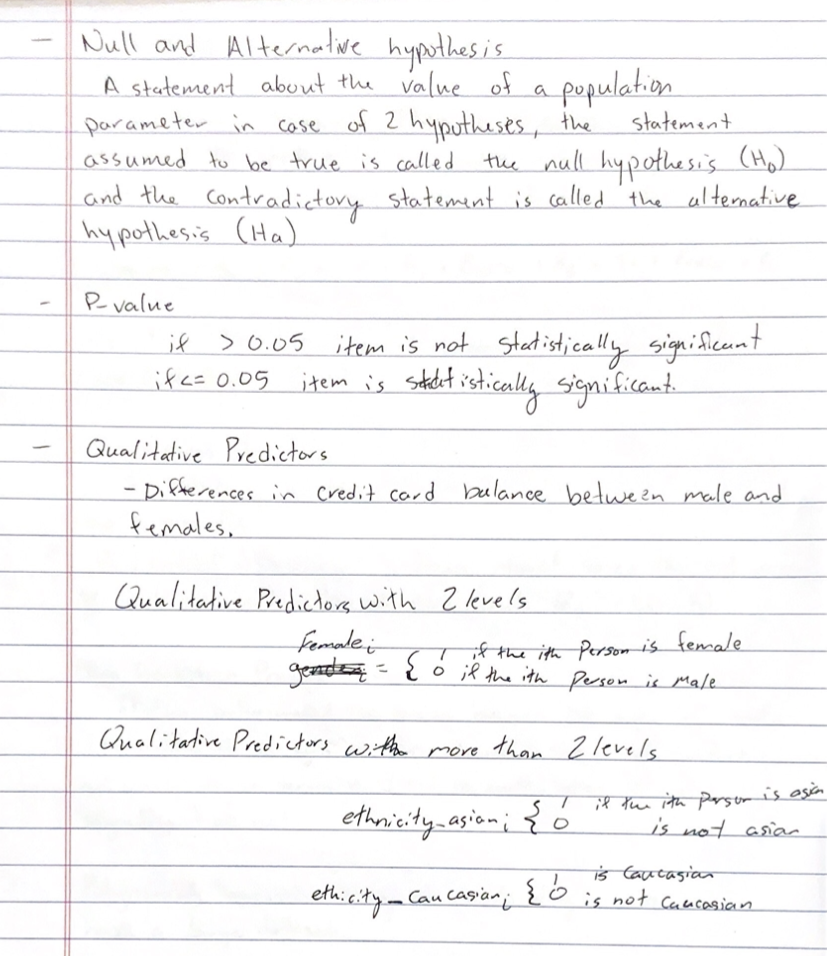 - Null and Alternative hypothesis
A statement about the value of a population
parameter in case of 2 hypotheses, the statement
assumed to be true is called the null hypothesis (H₀)
and the contradictory statement is called the alternative
hypothesis (Ha)
- P-value
if > 0.05 item is not statistically significant
if <= 0.05 item is statistically significant.
- Qualitative Predictors
- Differences in credit card balance between male and
females.
Qualitative Predictors with 2 levels
Femaleᵢ
genderᵢ = { 1 if the ith Person is female
0 if the ith Person is Male
Qualitative Predictors with more than 2 levels
ethnicity_asianᵢ { 1 if the ith person is asian
0 is not asian
ethicity_Caucasianᵢ { 1 is Caucasian
0 is not Caucasian